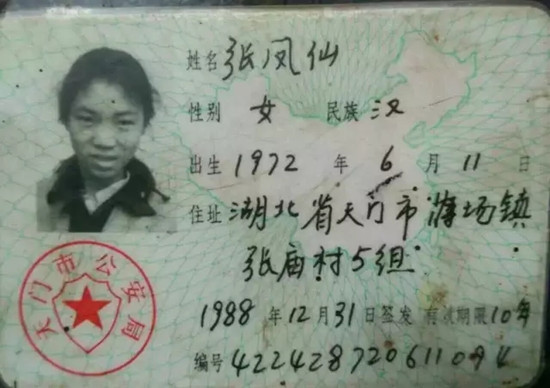 姓名 张凤仙
性别 女 民族 汉
出生 1972 年 6 月 11 日
住址 湖北省天门市蒋场镇
张庙村5组
1988 年 12 月 31 日签发 有效期限 10年
编号 422428720611094
天门市公安局